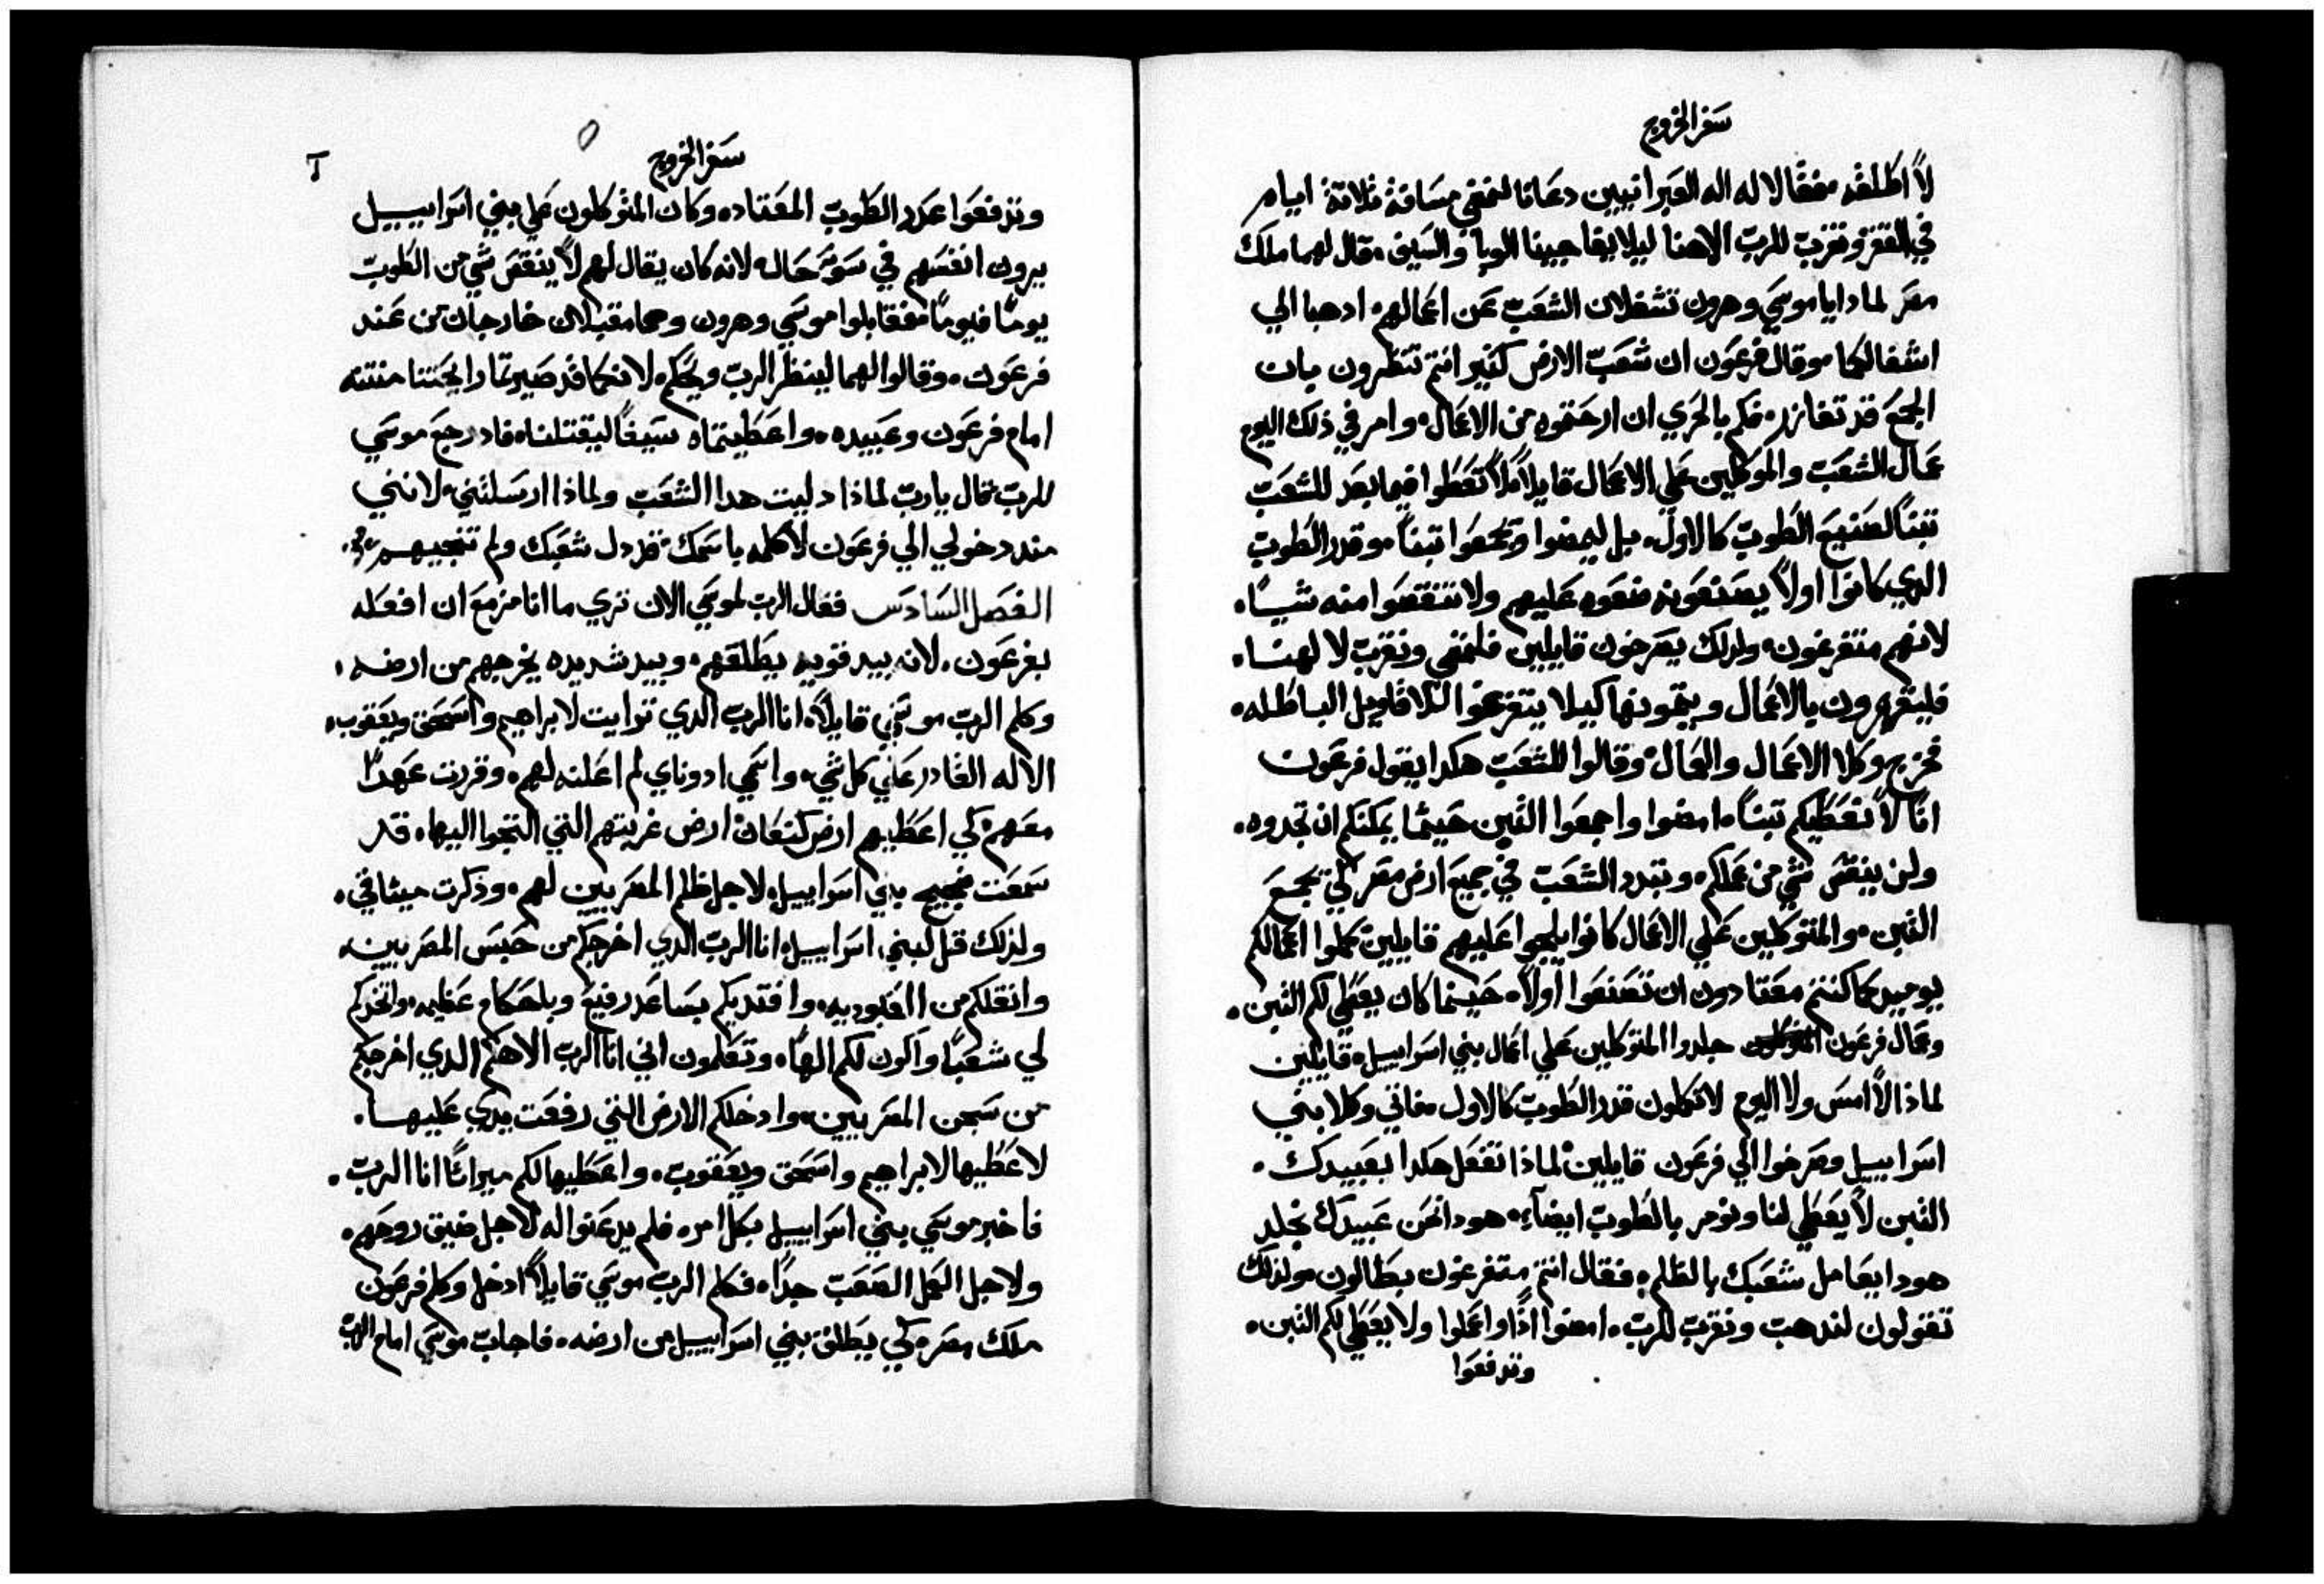 سفر الخروج
لا اطلقه. فقالا له اله العبرانيين دعانا لنمضي مسافة ثلاثة ايام
في القفر ونقرب للرب الاهنا ليلا يفاجينا الوبا والسيف. قال لهما ملك
مصر لمادا ياموسي وهرون تشغلان الشعب عن اعمالهم. ادهبا الي
اشغالكما. وقال فرعون ان شعب الارض كثير انتم تنظرون بان
الجمع قد تغازر. فكم بالحري ان ارحتموه من الاعمال. وامر في ذلك اليوم
عمال الشعب والموكلين علي الاعمال قايلا. لا تعطوا فيما بعد للشعب
تبنا لصنيع الطوب كالاول. بل ليمضوا ويجمعوا تبنا. وقدر الطوب
الدي كانوا اولا يصنعونه ضعوه عليهم ولا تنقصوا منه شيا.
لانهم متفرغون. ولدلك يصرخون قايلين فلنمضي ونقرب لالهنا.
فليقهرون بالاعمال ويتمونها كيلا يتفرغوا للاقاويل الباطله.
فخرج وكلا الاعمال والعمال وقالوا للشعب هكدا يقول فرعون
انا لا نعطيكم تبنا. امضوا واجمعوا التبن حيثما يمكنكم ان تجدوه.
ولن ينقص شي من عملكم. وتبدد الشعب في جميع ارض مصر لكي يجمع
التبن. والمتوكلين علي الاعمال كانوا يلجوا عليهم قايلين كملوا اعمالكم
يوميه كما كنتم معتادون ان تصنعوا اولا. حينما كان يعطي لكم التبن.
وعمال فرعون جلدوا المتوكلين علي اعمال بني اسراييل. قايلين
لماذا لا امس ولا اليوم لا تكملون قدر الطوب كالاول. فاتي وكلا بني
اسراييل وصرخوا الي فرعون قايلين لماذا تفعل هكدا بعبيدك.
التبن لا يعطي لنا ونومر بالطوب ايضاء. هودا نحن عبيدك نجلد
هودا يعامل شعبك بالظلم. فقال انتم متفرغون بطالون. ولدلك
تقولون لندهب ونقرب للرب. امضوا اذا واعملوا ولا يعطي لكم التبن.
وتدفعوا
سفر الخروج
وتدفعوا عدد الطوب المعتاده. وكان المتوكلون علي بني اسراييل
يرون انفسهم في سو حاله. لانه كان يقال لهم لا ينقص شي من الطوب
يوما فيوما. فقابلوا موسي وهرون وهما مقبلان خارجان من عند
فرعون. وقالوا لهما لينظر الرب ويحكم. لانكما قد صيرتما رايحتنا منتنه
امام فرعون وعبيده. واعطيتماه سيفا ليقتلنا. فاد رجع موسي
للرب قال يارب لماذا دليت هدا الشعب ولماذا ارسلتني. لانني
مند دخولي الي فرعون لاكلمه باسمك. قد دل شعبك ولم تنجيهم
الفصل السادس فقال الرب لموسي الان تري ما انا مزمع ان افعله
بفرعون. لانه بيد قويه يطلقهم. وبيد شديده يخرجهم من ارضه.
وكلم الرب موسي قايلا. انا الرب الدي ترايت لابراهيم واسحق ويعقوب.
الاله القادر علي كل شي. واسمي ادوناي لم اعلنه لهم. وقررت عهدا
معهم. لكي اعطيهم ارض كنعان ارض غربتهم التي التجوا اليها. قد
سمعت ضجيج بني اسراييل. لاجل ظلم المصريين لهم. وذكرت ميثاقي.
ولذلك قل لبني اسراييل. انا الرب الدي اخرجكم من حبس المصريين.
وانقلكم من العبوديه. وافتديكم بساعد رفيع وباحكام عظيمه. واتخدكم
لي شعبا واكون لكم الها. وتعلمون اني انا الرب الاهكم الدي اخرجكم
من سجن المصريين. وادخلكم الارض التي رفعت يدي عليها.
لاعطيها لابراهيم واسحق ويعقوب. واعطيها لكم ميراثا انا الرب.
فاخبر موسي بني اسراييل بكل امره. فلم يدعنوا له لاجل ضيق روحهم.
ولاجل العمل الصعب جدا. فكلم الرب موسي قايلا ادخل وكلم فرعون
ملك مصر. لكي يطلق بني اسراييل من ارضه. فاجاب موسي امام الرب